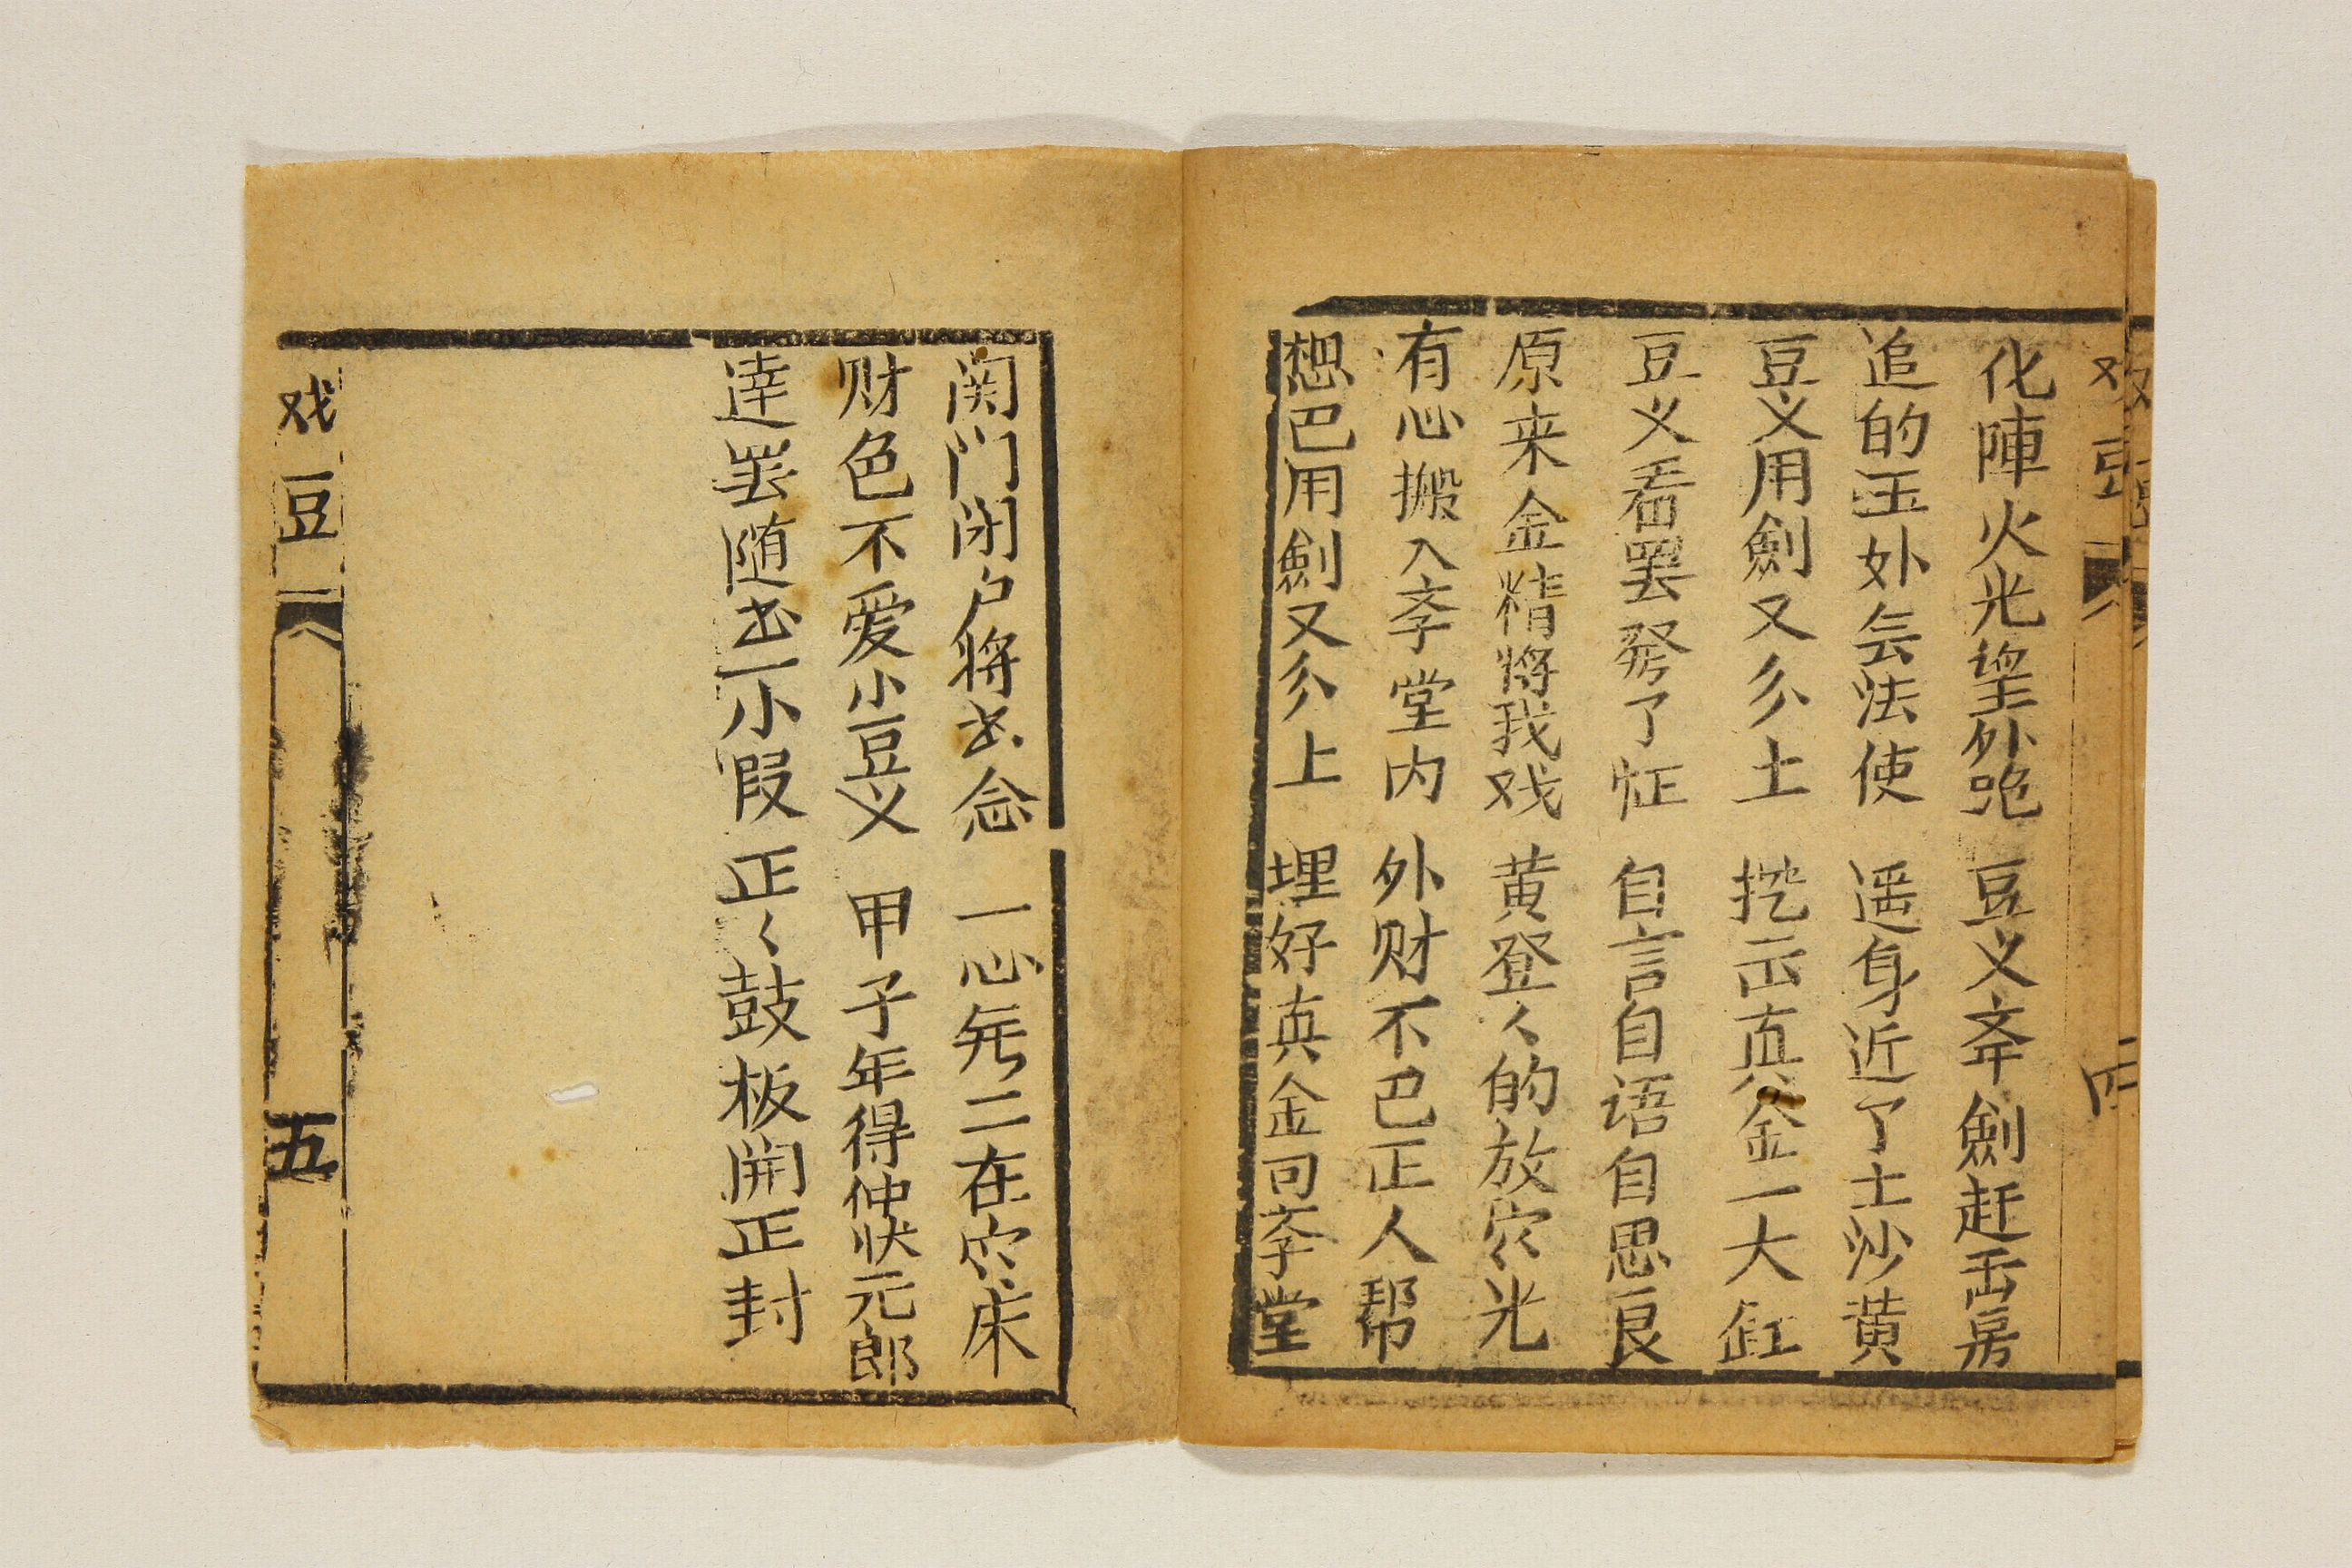 戏豆 四
化陣火光望外跑 豆义斉劍赶出房
追的玉外会法使 遥身近了土沙黄
豆义用劍又分土 挖出真金一大缸
豆义看罢発了怔 自言自语自思良
原来金精将我戏 黄登〻的放穴光
有心搬入斈堂内 外财不巴正人帮
想巴用劍又分上 埋好真金回斈堂
関门闭户将书念 一心旡二在穴床
财色不爱小豆义 甲子年得仲状元郎
達罢随书一小叚 正〻鼓板開正封
戏豆 五